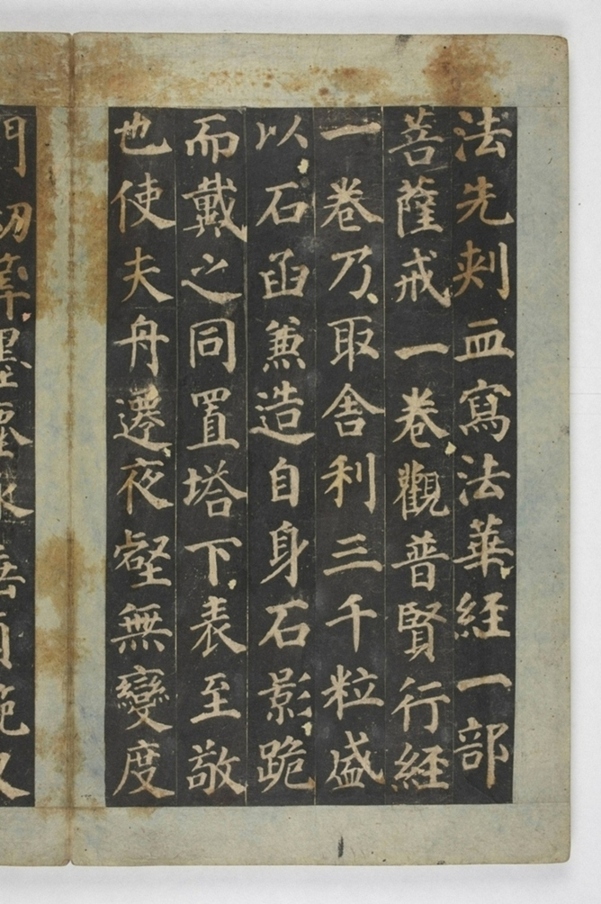 法先刺血寫法華經一部
菩薩戒一卷觀普賢行經
一卷乃取舍利三千粒盛
以石函兼造自身石影跪
而戴之同置塔下表至敬
也使夫舟遷夜壑無變度
門劫筭墨塵永垂貽範又